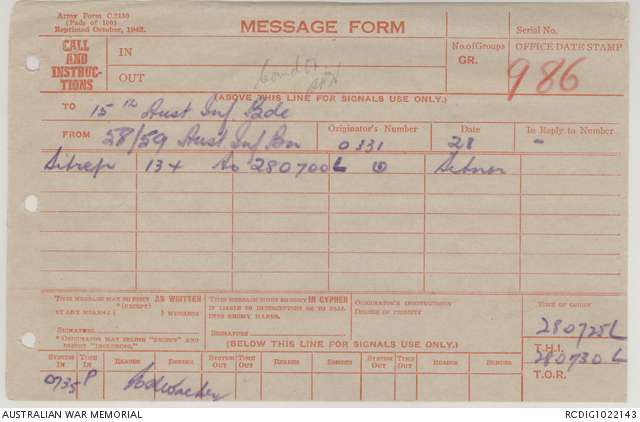 Army Form C.2130
(Pads of 100)
Reprinted October, 1942.
MESSAGE FORM
Serial No.
CALL AND INSTRUCTIONS
IN
OUT
No. of Groups
GR.
OFFICE DATE STAMP
986
(ABOVE THIS LINE FOR SIGNALS USE ONLY.)
TO 15th Aust Inf Bde
FROM 58/59 Aust Inf Bn
Originator's Number
0331
Date
28
In Reply to Number
-
Sitrep 134 to 280700L Sitnor
THIS MESSAGE MAY BE SENT AS WRITTEN
*(EXCEPT)
BY ANY MEANS ( ) WIRELESS
SIGNATURE
* ORIGINATOR MAY DELETE "EXCEPT" AND INSERT "INCLUDING."
THIS MESSAGE MUST BE SENT IN CYPHER
IF LIABLE TO INTERCEPTION OR TO FALL INTO ENEMY HANDS.
SIGNATURE
ORIGINATOR'S INSTRUCTIONS
DEGREE OF PRIORITY
TIME OF ORIGIN
280725L
T.H.I.
280730L
T.O.R.
(BELOW THIS LINE FOR SIGNALS USE ONLY.)
SYSTEM IN TIME IN READER SENDER SYSTEM OUT TIME OUT READER SENDER SYSTEM OUT TIME OUT READER SENDER
0735 P
AUSTRALIAN WAR MEMORIAL
RCDIG1022143